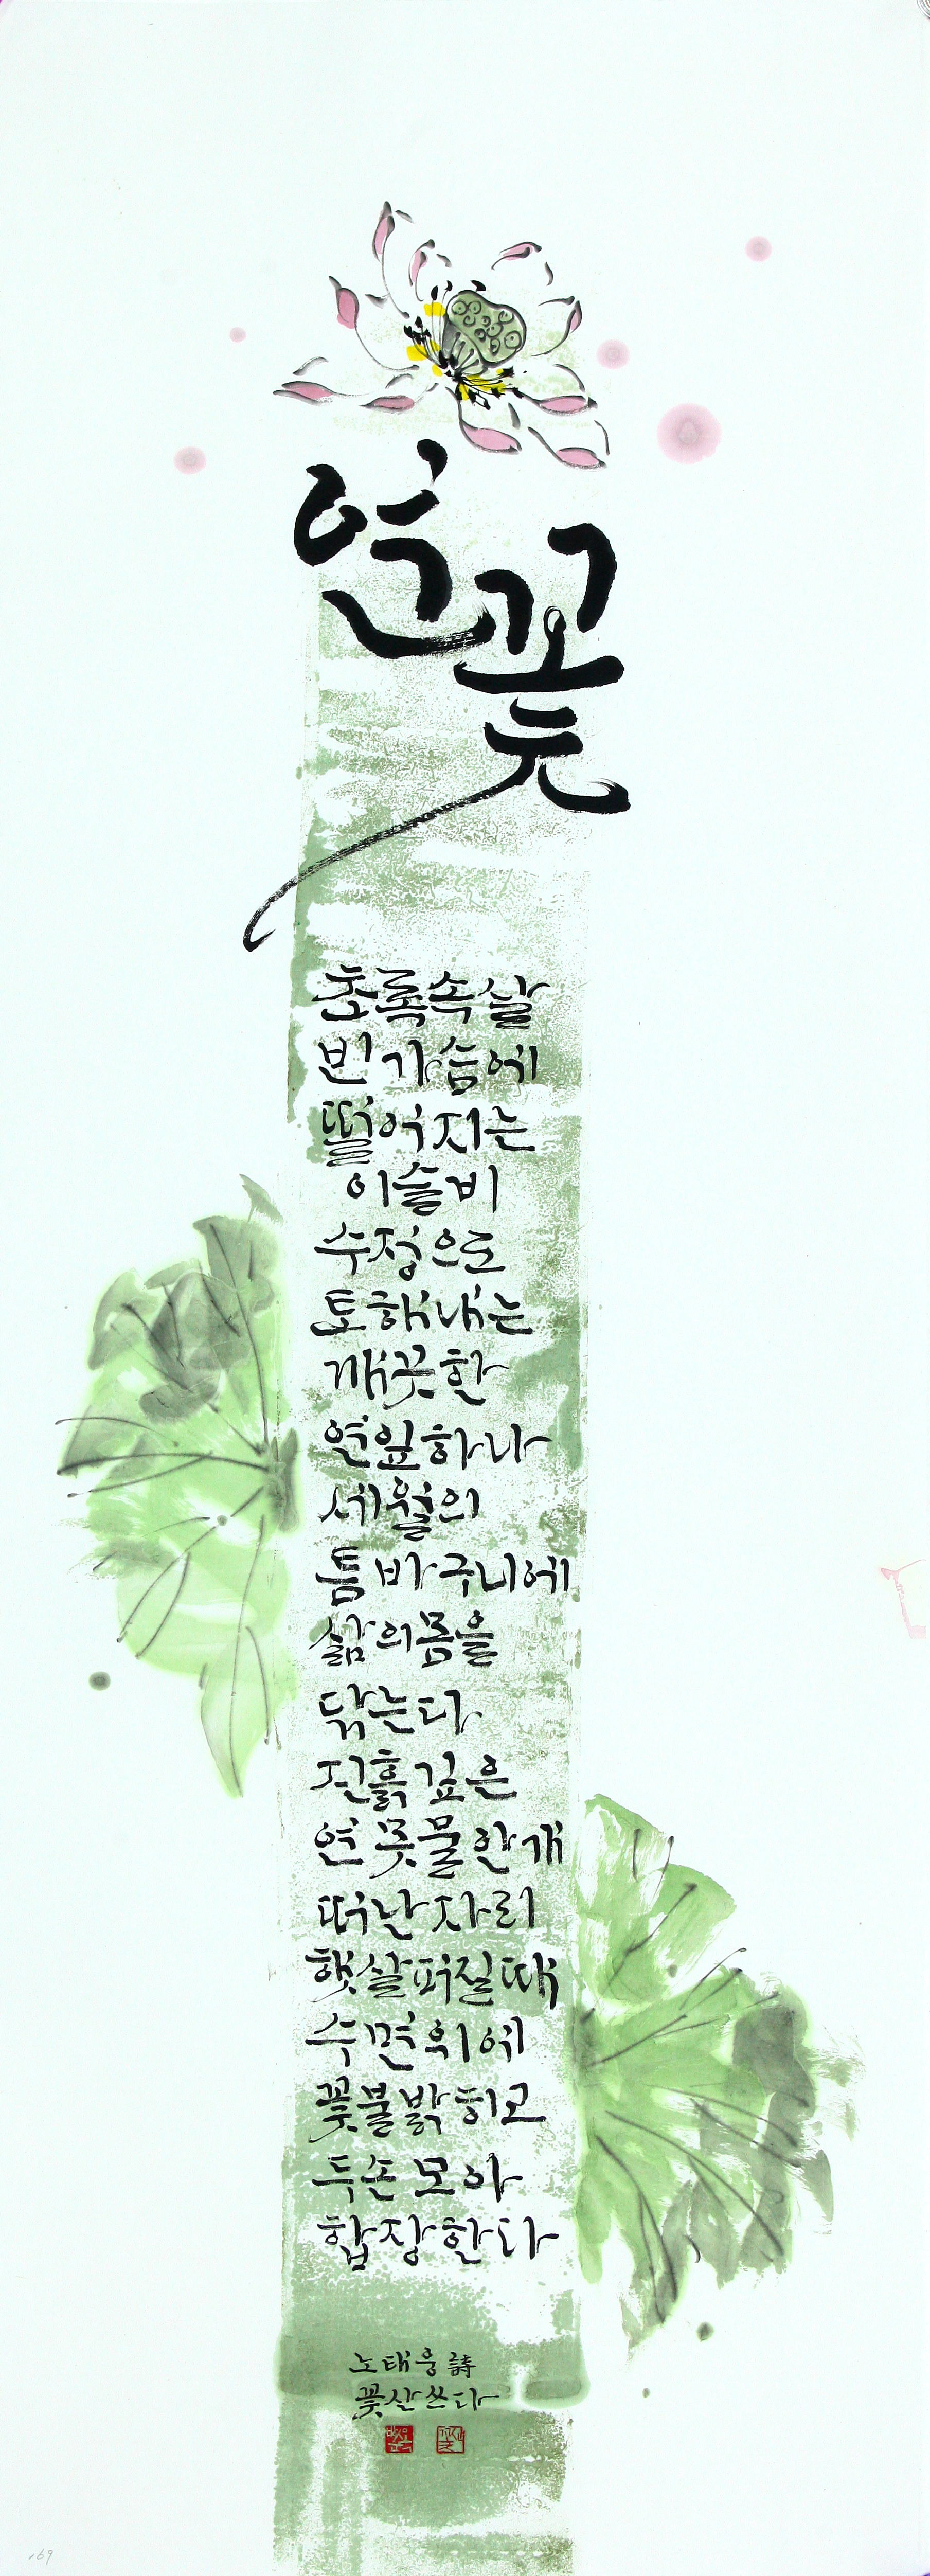 연꽃
초록속살
빈가슴에
떨어지는
이슬비
수정으로
토해내는
깨끗한
연잎하나
세월의
틈바구니에
삶의몸을
닦는다
진흙깊은
연못물안개
떠난자리
햇살퍼질때
수면위에
꽃불밝히고
두손모아
합장한다
노태웅 詩
꽃산쓰다
169